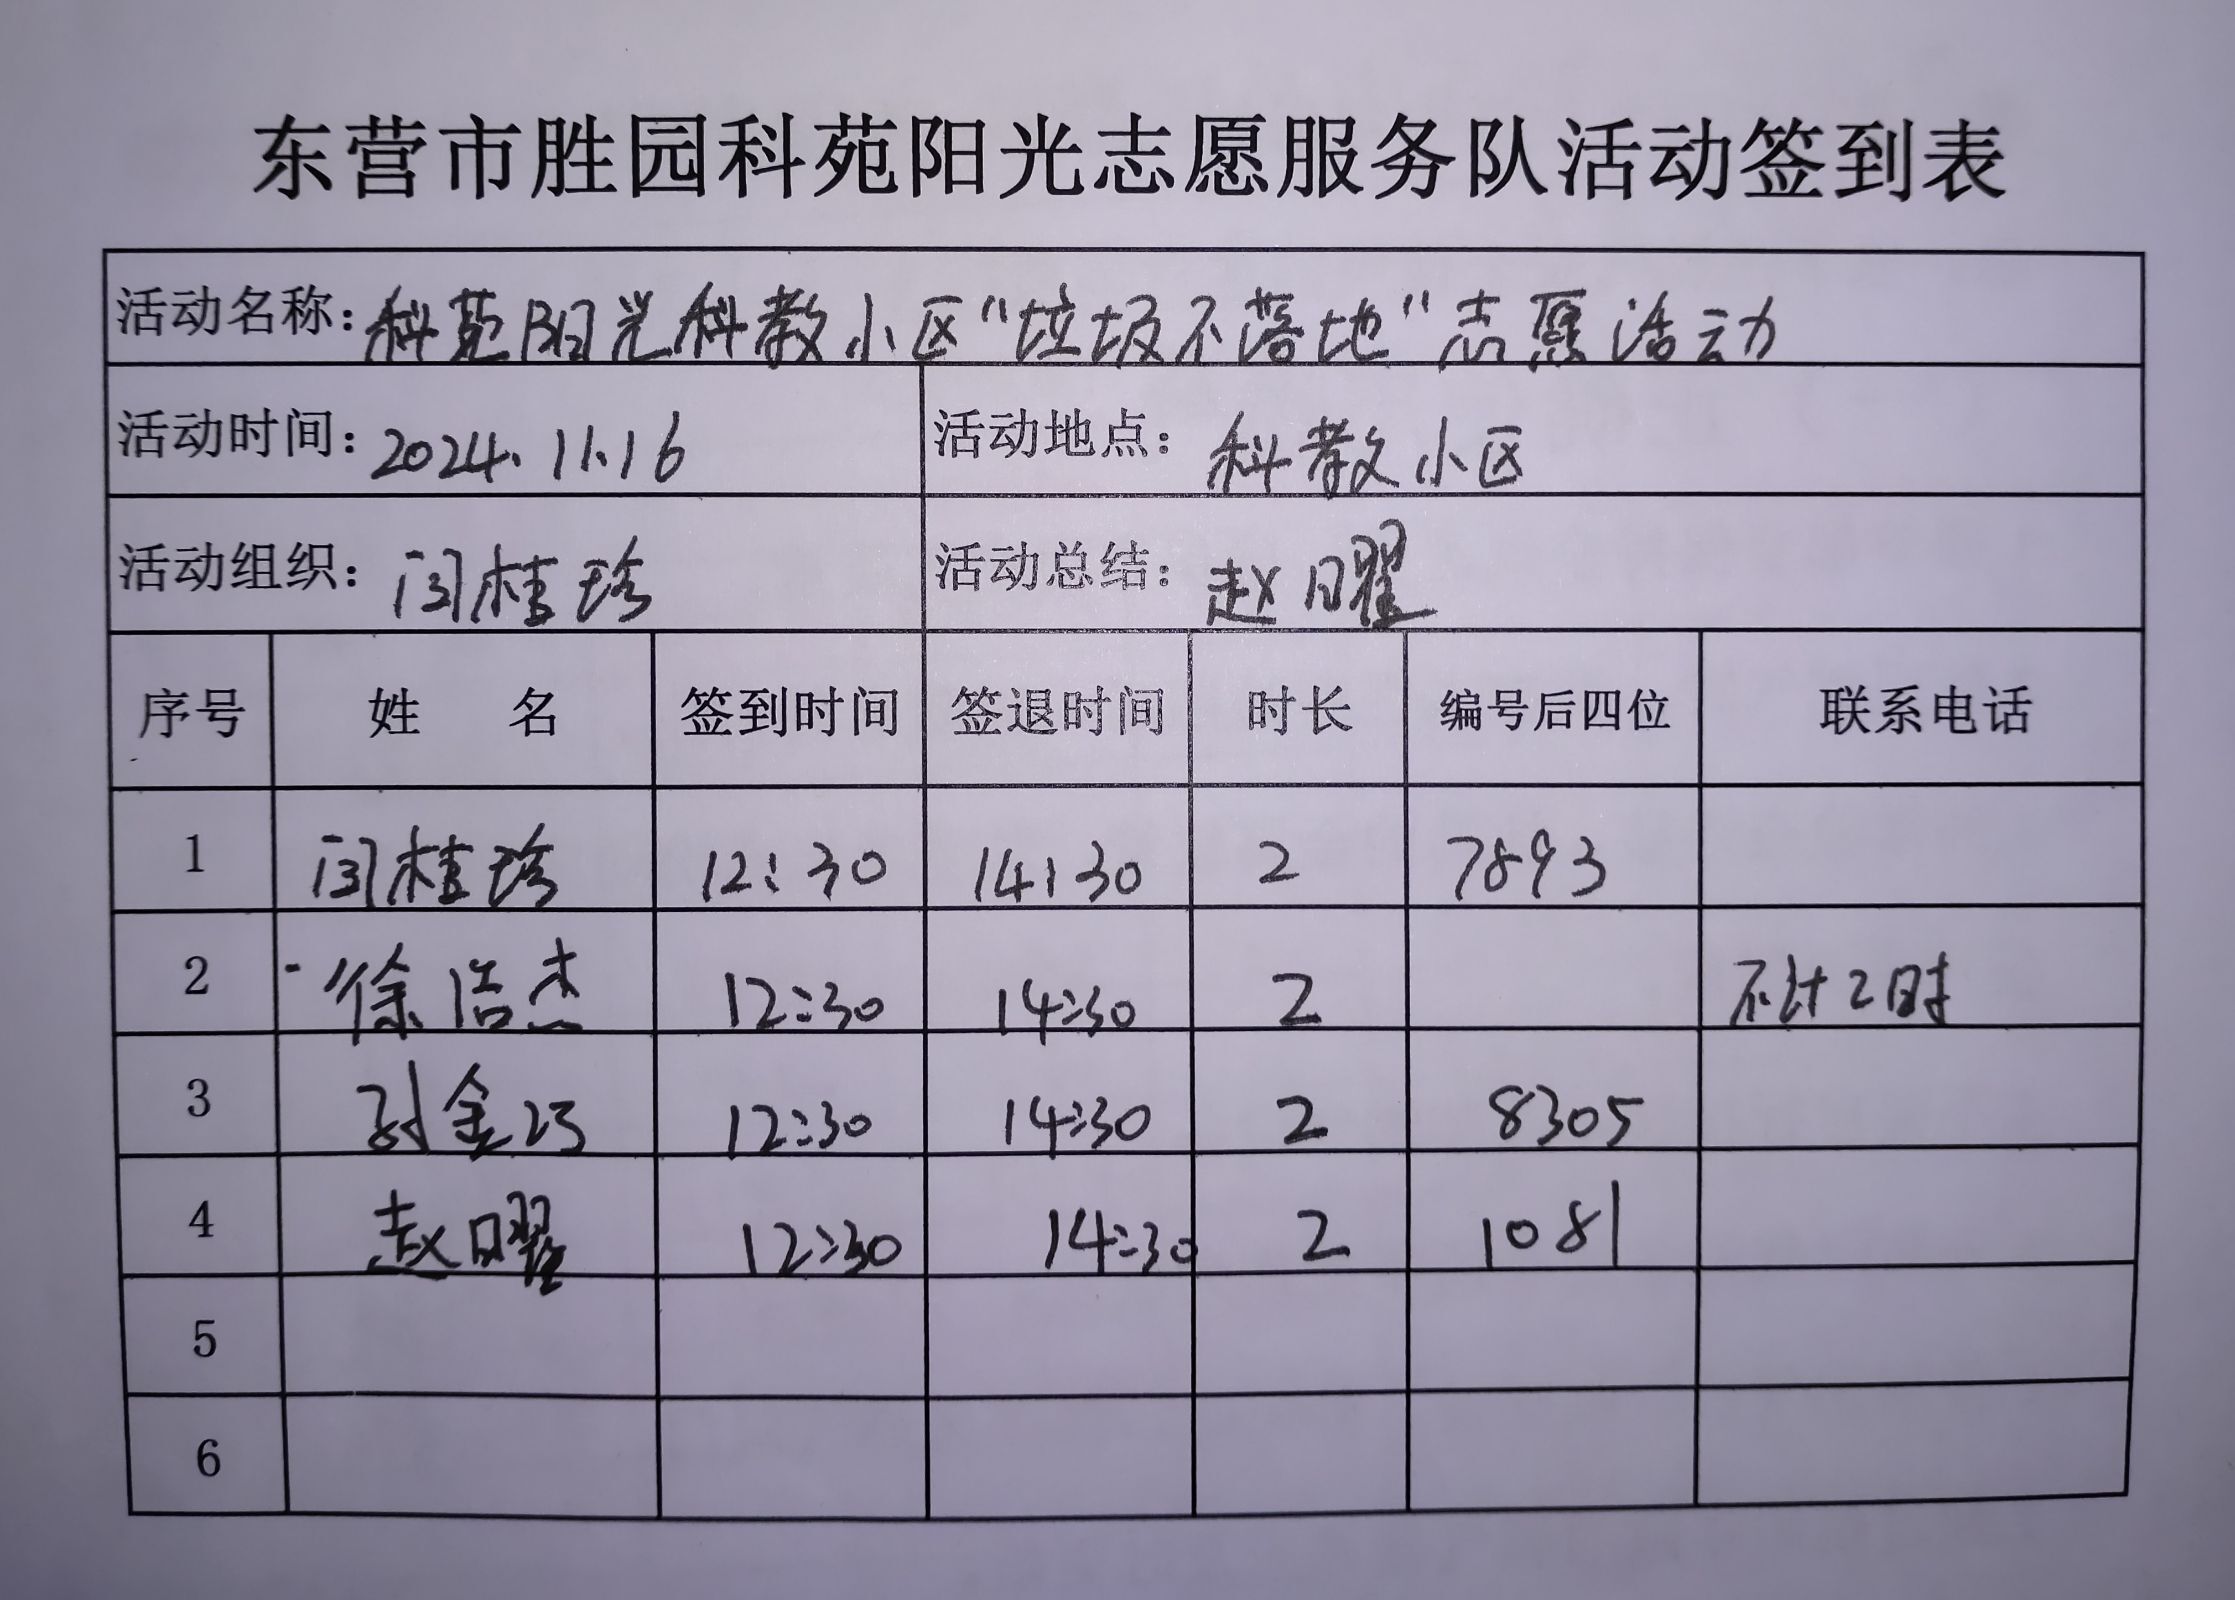 东营市胜园科苑阳光志愿服务队活动签到表
活动名称：科苑阳光科教小区“垃圾不落地”志愿活动
活动时间：2024.11.16 活动地点：科教小区
活动组织：闫桂珍 活动总结：赵日曜
序号 姓名 签到时间 签退时间 时长 编号后四位 联系电话
1 闫桂珍 12:30 14:30 2 7893
2 徐浩杰 12:30 14:30 2 不计工时
3 孙金巧 12:30 14:30 2 8305
4 赵日曜 12:30 14:30 2 1081
5
6